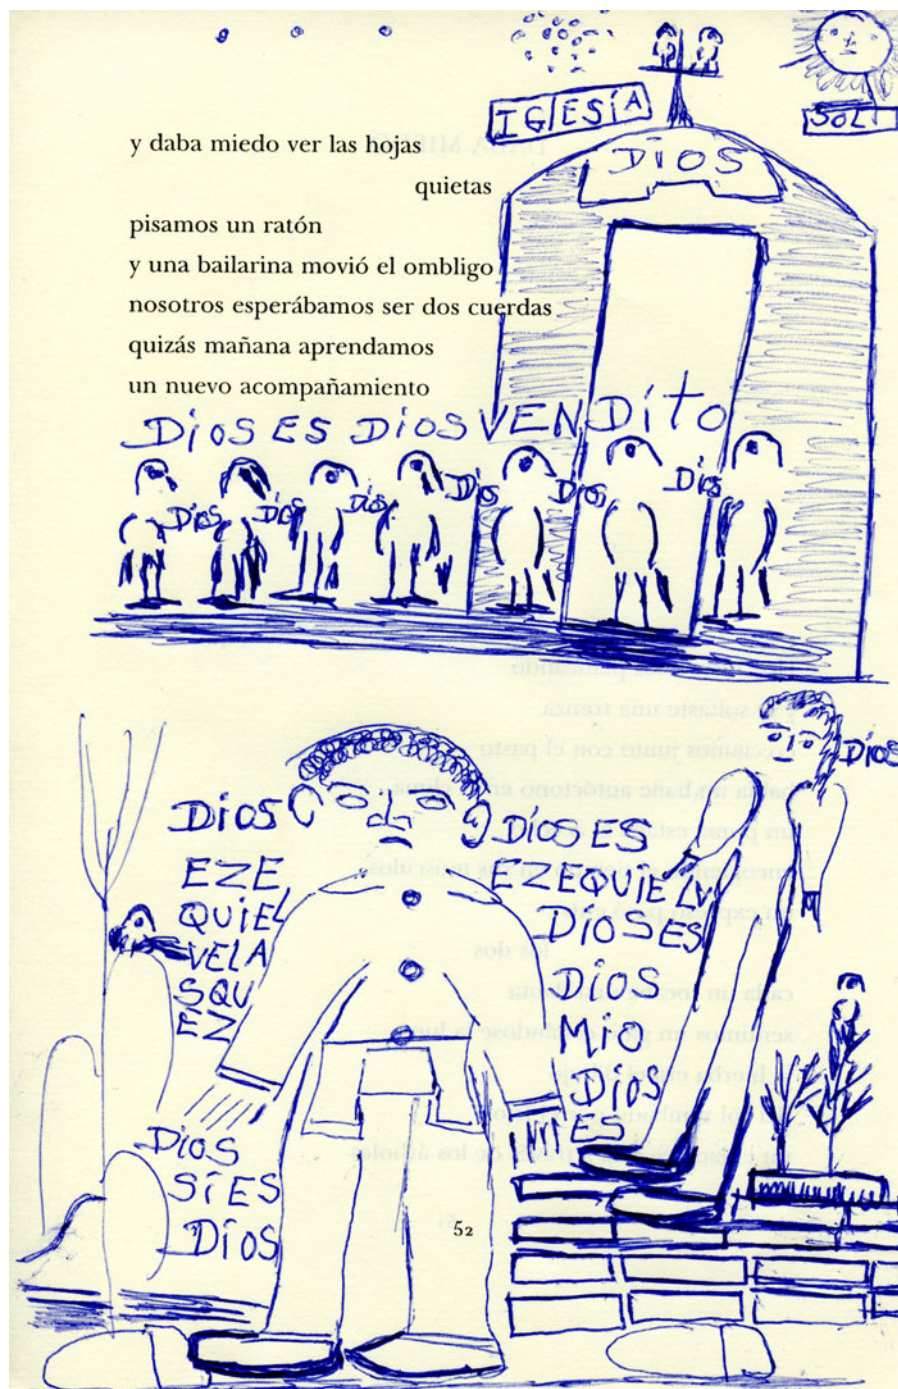 IGLESÍA
SOL
DiOS
y daba miedo ver las hojas
quietas
pisamos un ratón
y una bailarina movió el ombligo
nosotros esperábamos ser dos cuerdas
quizás mañana aprendamos
un nuevo acompañamiento
DiOS ES DiOS VENDito
Dios Dios Dios Dios Dios Dios
DiOS
DiOS
EZE
QUiEL
VELA
SQU
EZ
DiOS ES
EZEQUIEL
DIOS ES
DiOS
MiO
DiOS
ES
DiOS
Sí ES
DiOS
52